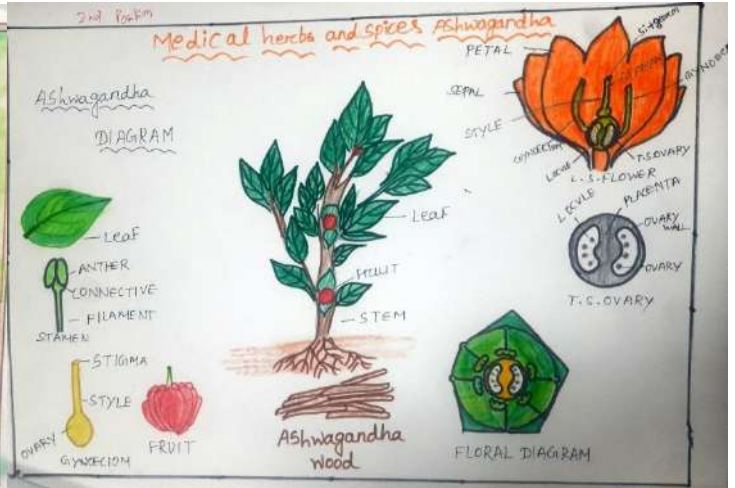 2nd Position
Medical herbs and spices Ashwagandha
Ashwagandha
DIAGRAM
Leaf
ANTHER
CONNECTIVE
FILAMENT
STAMEN
STIGMA
STYLE
OVARY
GYNCECIOM
FRUIT
Leaf
STEM
Ashwagandha
Wood
PETAL
SEPAL
STYLE
LOCULE
T.S.OVARY
L.S.FLOWER
LOCULE
PLACENTA
OVARY
WALL
OVARY
T.S.OVARY
FLORAL DIAGRAM